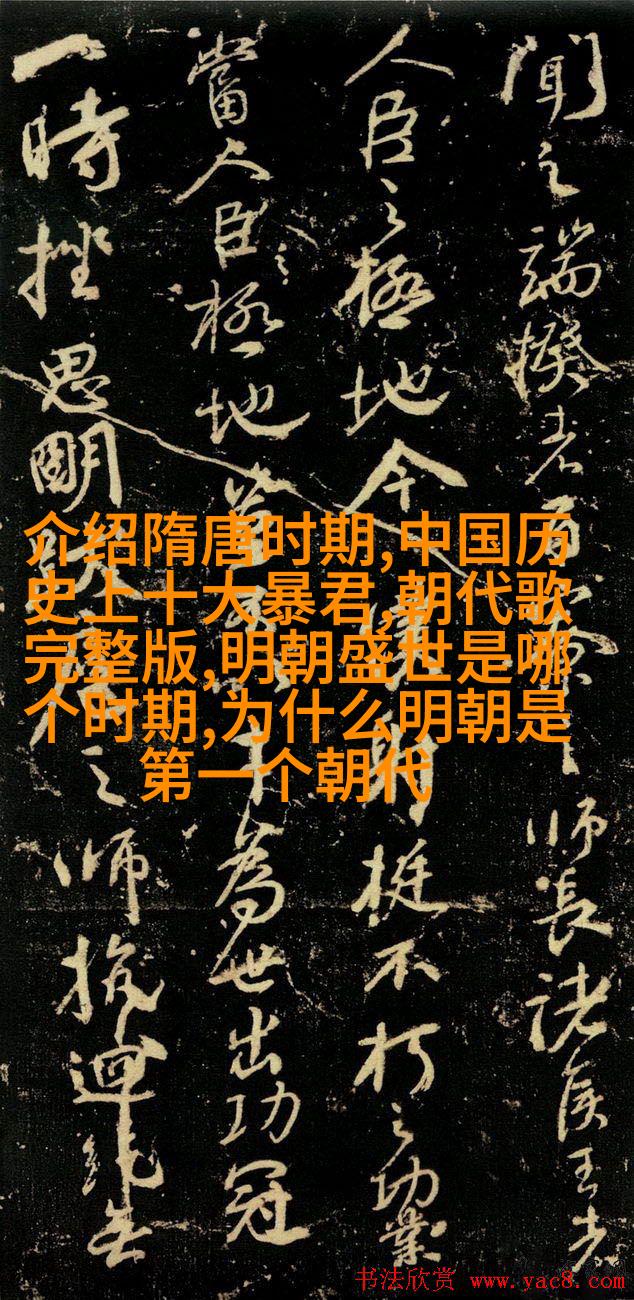 聞之端揆者百之師長諸侯王者
人臣之極地今挺不朽之功業
當人臣之極地豈為世出功冠
一時挫思明跋之師抗迴紇無
介绍隋唐时期,中国历
史上十大暴君,朝代歌
完整版,明朝盛世是哪
个时期,为什么明朝是
第一个朝代
书法欣赏 www.yac8.com